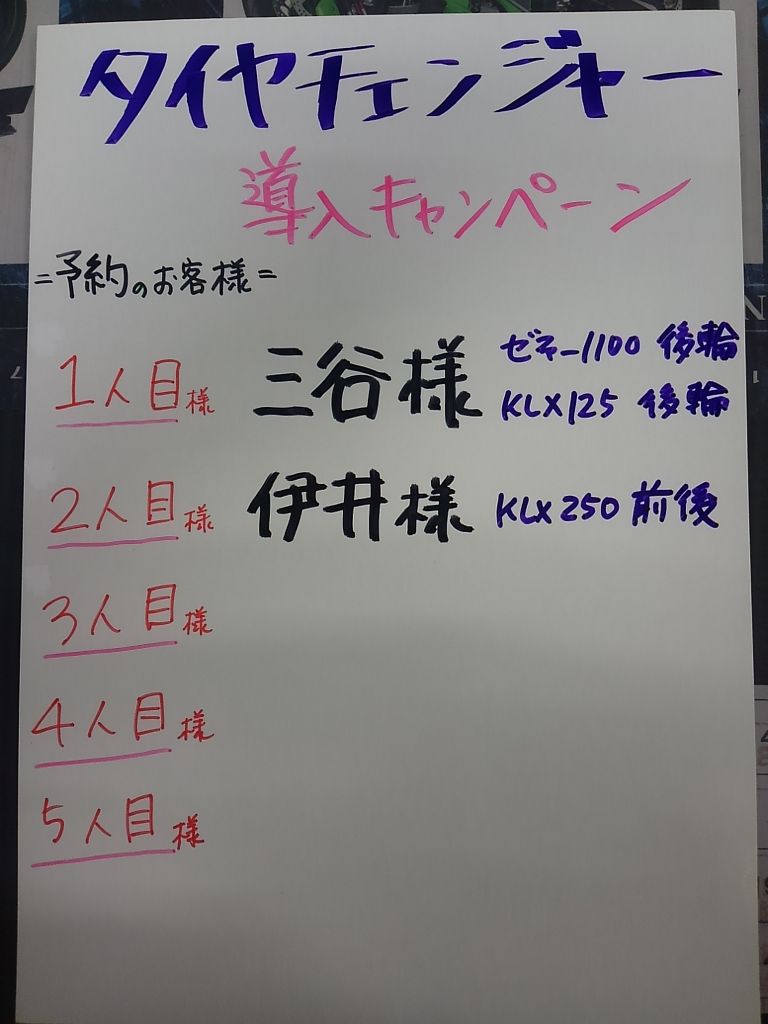 タイヤチェンジャー
導入キャンペーン
=予約のお客様=
1人目様 三谷様 ゼファー1100 後輪
KLX125 後輪
2人目様 伊井様 KLX250 前後
3人目様
4人目様
5人目様